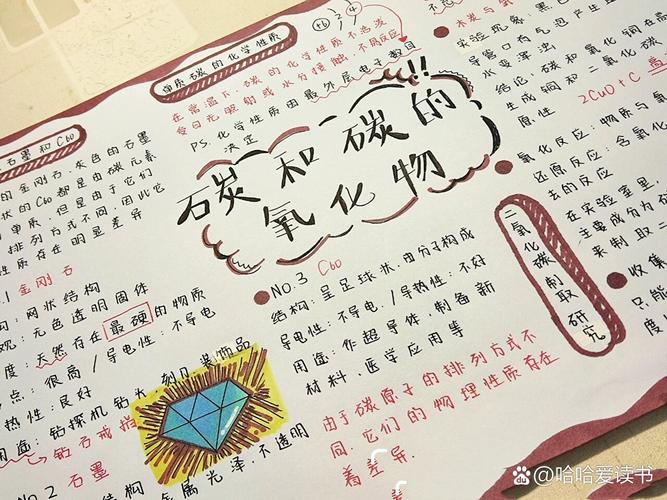 单质碳的化学性质
在常温下,碳的化学性质不活泼
受日光照射或水分接触,不易反应
PS.化学性质由最外层电子数目
决定
碳和碳的
氧化物
石墨和C60
的金刚石,灰色的石墨
状的C60都是由碳元素
单质,但是由于它们
排列方式不同,因此它
性质存在明显差异
.1 金刚石
构:网状结构
观:无色透明固体
度:天然存在最硬的物质
点:很高/导电性:不导电
热性:良好
用途:钻探机钻头,刻刀,装饰品
钻石戒指
No.2 石墨
金属光泽,不透明
NO.3 C60
结构:呈足球状,由分子构成
导电性:不导电/导热性:不好
用途:作超导体,制备新
材料、医学应用等
由于碳原子的排列方式不
同,它们的物理性质存在
着差异.
木炭与氧
实验现象:黑
导管口有气泡产生
水变浑浊
结论:碳和氧化铜在高
生成铜和二氧化碳
原性
2CuO+C
氧化反应:物质与氧
还原反应:含氧化
去的反应
二氧化碳制取研究
在实验室里,
主要成分为碳
来制取二
收集
只能
度
哈哈爱读书